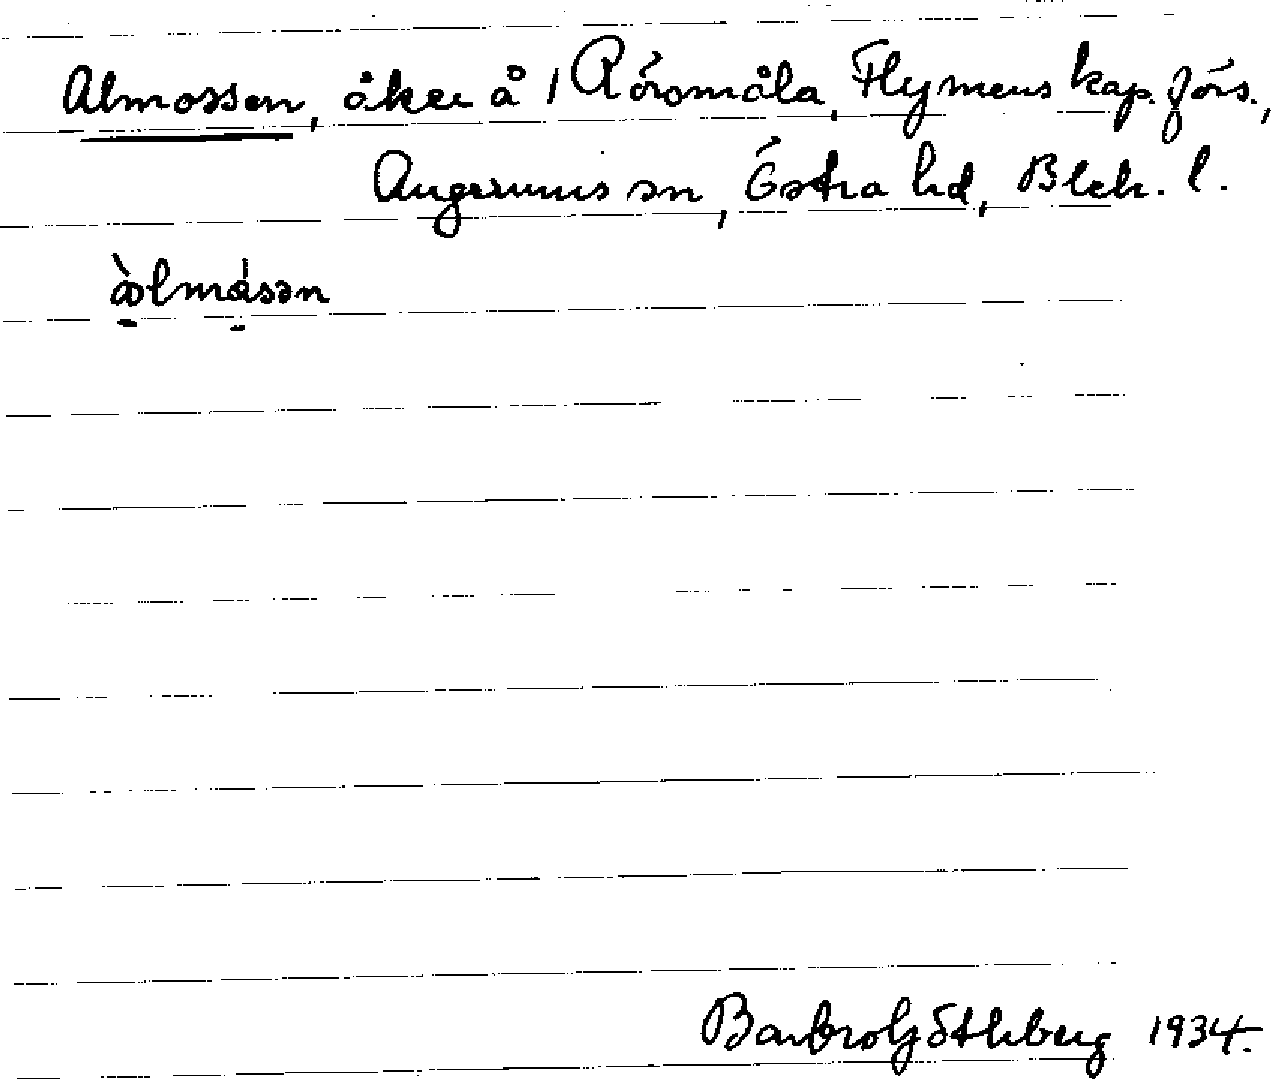 Almossen, åker å 1 Röromåla, Flymens kap. förs.,
Augerums sn, Östra hd, Blek. l.
àlmása̱n
Barbro Göthberg 1934.